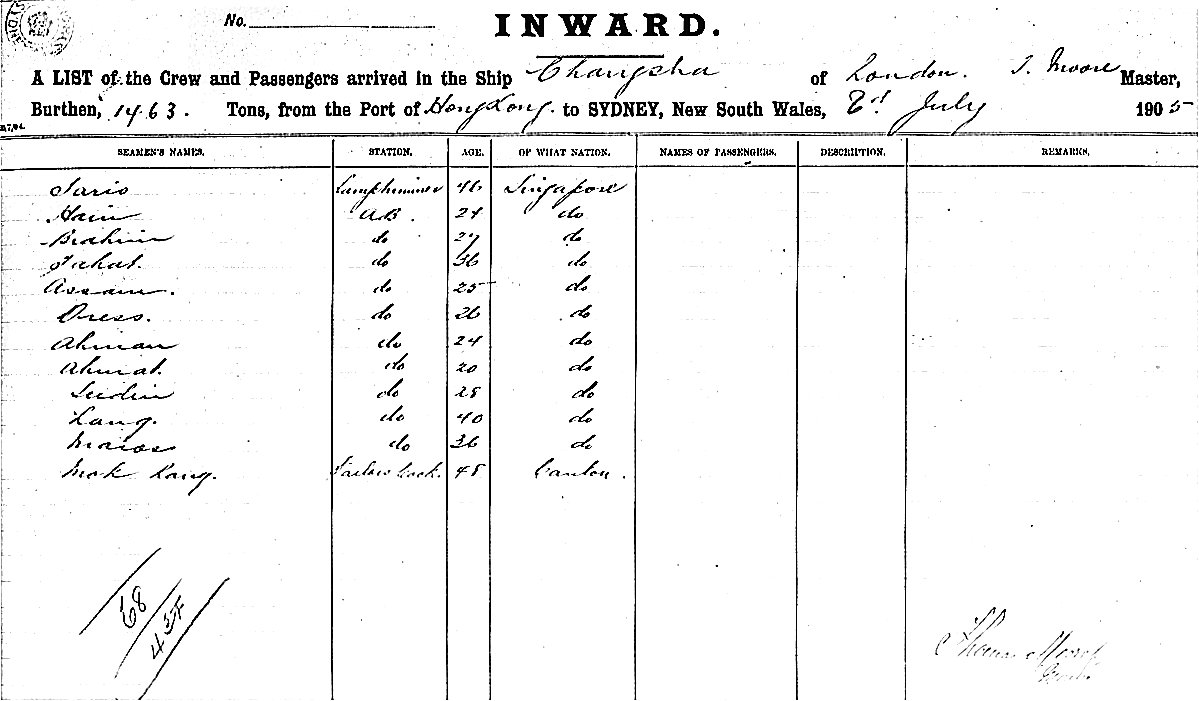 No.
INWARD.
A LIST of the Crew and Passengers arrived in the Ship Changsha of London. T. Moore Master,
Burthen, 1463. Tons, from the Port of HongKong. to SYDNEY, New South Wales, July 1905
SEAMEN'S NAMES. STATION. AGE. OF WHAT NATION. NAMES OF PASSENGERS. DESCRIPTION. REMARKS.
Sario Lamptrimmer 46 Singapore
Hain A.B. 24 do
Brahim do 27 do
Tahat. do 36 do
Assam. do 25 do
Dress. do 26 do
Ahman do 24 do
Ahmat. do 20 do
do 28 do
Lang. do 40 do
do 36 do
Mok Kang. Sailors Cook. 48 Canton.
68
Thomas Moore